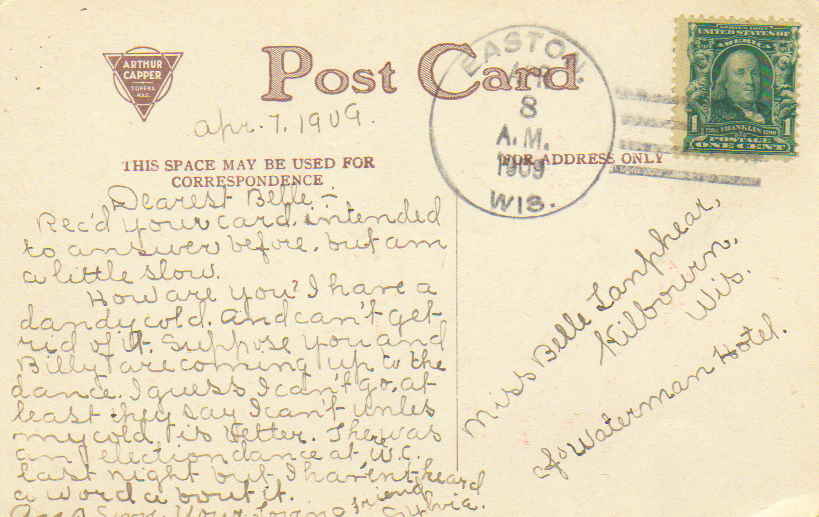 ARTHUR
CAPPER
TOPEKA
KAS.
Post Card
EASTON,
APR
8
A.M.
1909
WIS.
UNITED STATES OF
AMERICA
FRANKLIN
1 1
POSTAGE
ONE CENT
Apr. 7, 1909.
THIS SPACE MAY BE USED FOR
CORRESPONDENCE
FOR ADDRESS ONLY
Dearest Belle:-
Rec'd your card. intended
to answer before. but am
a little slow.
How are you? I have a
dandy cold. And can't get
rid of it. Suppose you and
Billy are coming up to the
dance. I guess I can't go. at
least they say I can't unles
my cold is better. There was
an election dance at W.C.
last night but I haven't heard
a word about it.
Ans Soon. Your Loving friend
Sylvia.
Miss Belle Lanphear,
Kilbourn,
Wis.
c/o Waterman Hotel.